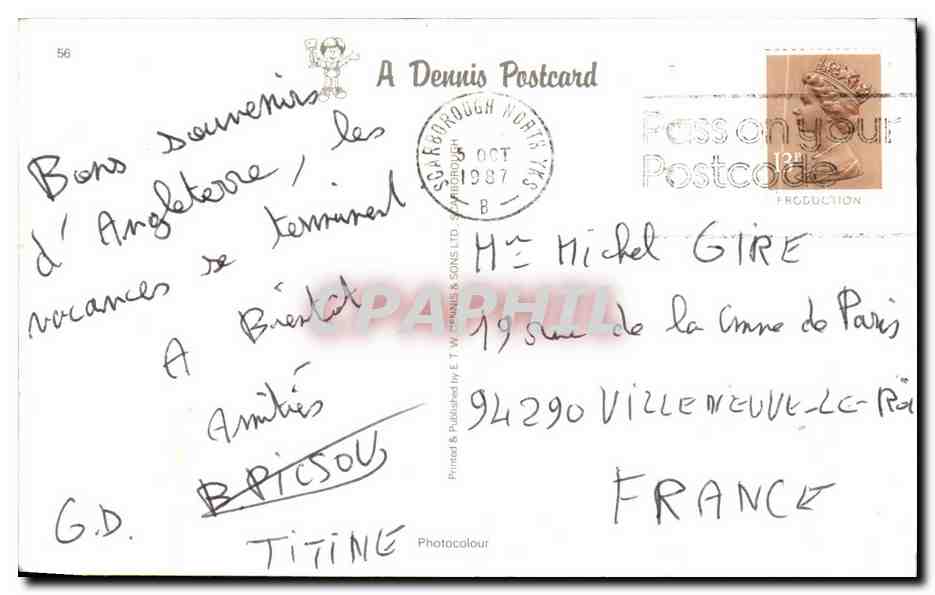 56
A Dennis Postcard
Bons souvenirs
d'Angleterre, les
vacances se terminent
A Bientot
Amitiés
B. PICSOU
G.D.
TITINE
SCARBOROUGH NORTH YKS
5 OCT
1987
B
Pass on your
Postcode
13P
PRODUCTION
Mr Michel GIRE
19 rue de la Cmne de Paris
94290 VILLENEUVE-LE-ROI
FRANCE
Printed & Published by E. T. W. DENNIS & SONS LTD. SCARBOROUGH
Photocolour
CPAPHIL